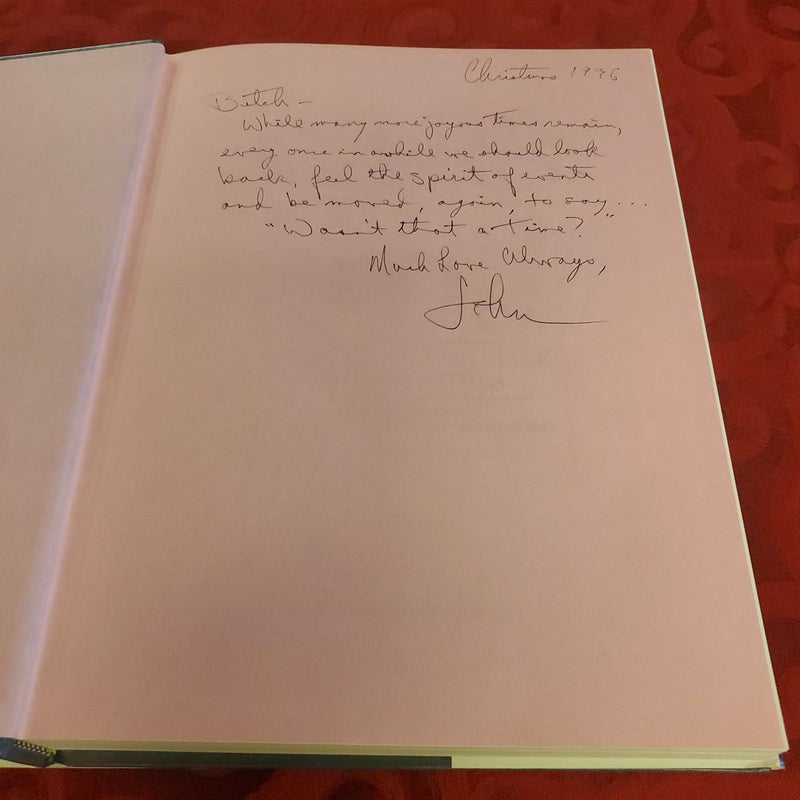 Christmas 1996
Bitch –
While many more joyous times remain,
every once in awhile we should look
back, feel the spirit of events
and be moved, again, to say...
"Wasn't that a time?"
Much Love Always,
John